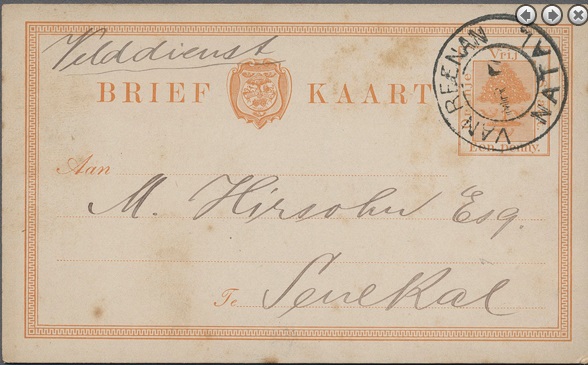 Velddienst
BRIEF KAART
VAN REENAN
NATAL
Vrij
Een penny.
Aan
M. Hirsohn Esq.
Te Senekal